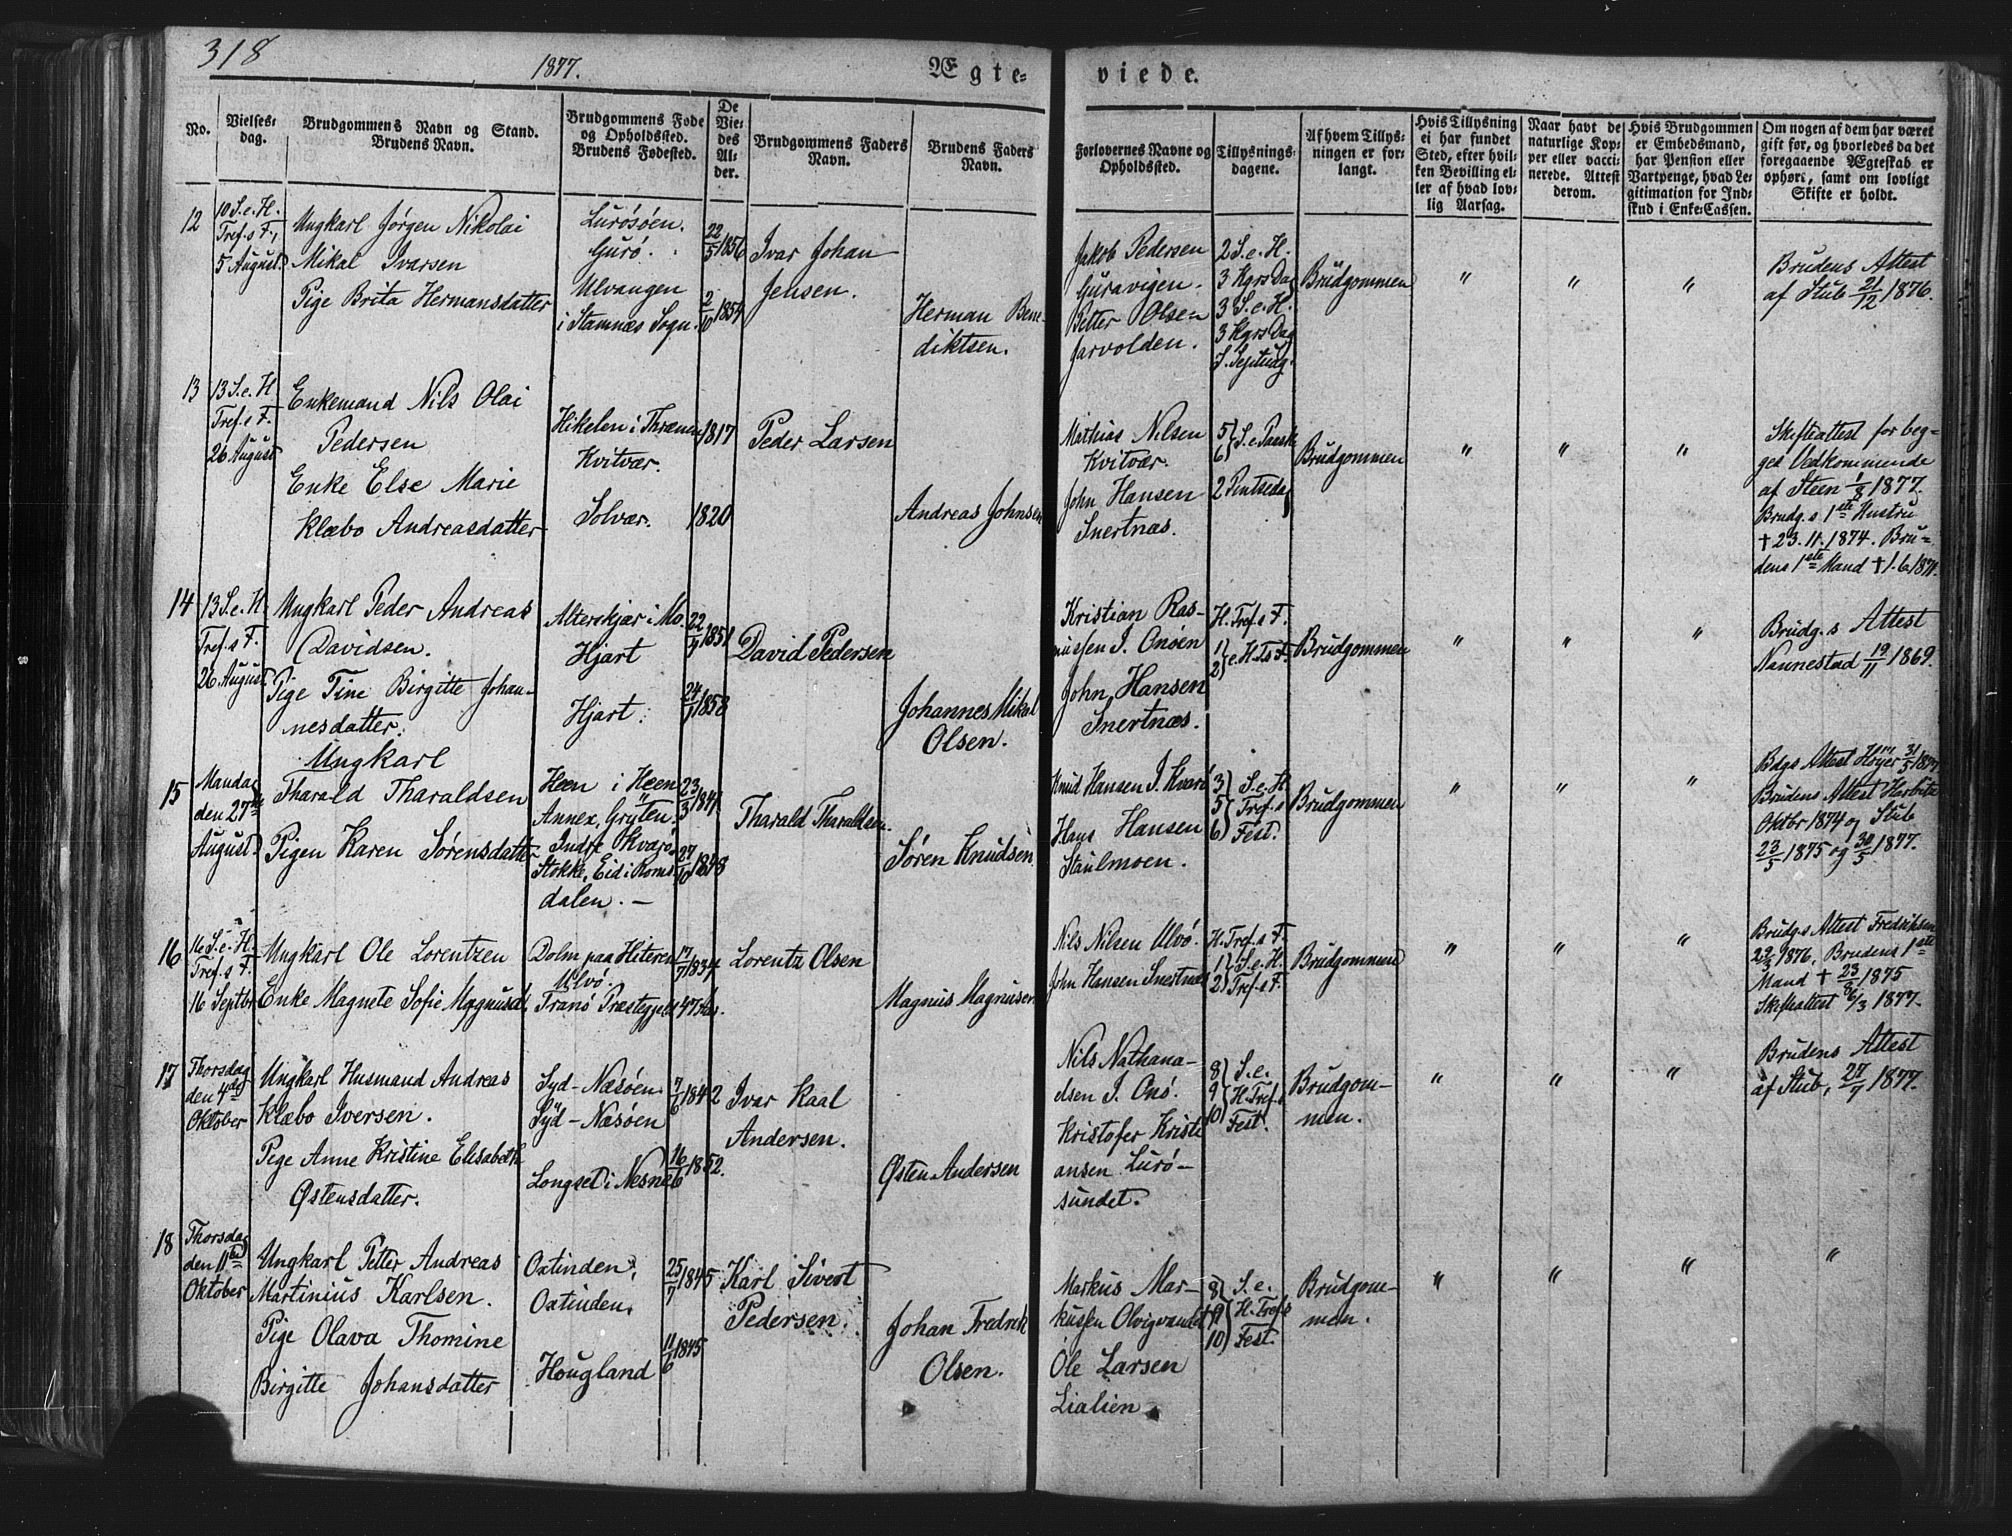 318
1877.
Ægte-
viede.
No.
Vielses-
dag.
Brudgommens Navn og Stand.
Brudens Navn.
Brudgommens Føde
og Opholdssted.
Brudens Fødested.
De
Vie-
des
Al-
der.
Brudgommens Faders
Navn.
Brudens Faders
Navn.
Forlovernes Navne og
Opholdssted.
Tillysnings-
dagene.
Af hvem Tillys-
ningen er for-
langt.
Hvis Tillysning
ei har fundet
Sted, efter hvil-
ken Bevilling el-
ler af hvad lov-
lig Aarsag.
Naar havt de
naturlige Kop-
per eller vacci-
nerede. Attest
derom.
Hvis Brudgommen
er Embedsmand,
har Pension eller
Vartpenge, hvad Le-
gitimation for Ind-
skud i Enke-Cassen.
Om nogen af dem har været
gift før, og hvorledes da det
foregaaende Ægteskab er
ophørt, samt om lovligt
Skifte er holdt.
12
10 S. e. H.
Tref.s F.,
5 August
Ungkarl Jörgen Nikolai
Mikal Ivarsen
Pige Brita Hermansdatter
Lurösöen.
Gurö.
Ulvangen
i Stamnæs Sogn.
22/5 1856
2/10 1854
Ivar Johan
Jensen.
Herman Bene-
diktsen.
Jakob Pedersen
Guravigen.
Petter Olsen
Jarvolden.
2 S. e. H.
3 Kgrs Dag
3 S. e. H.
3 Kgrs Dag
Brudgommen
"
"
"
Brudens Attest
af Stub 21/12 1876.
13
13 S. e. H
Tref.s F.
26 August
Enkemand Nils Olai
Pedersen
Enke Else Marie
Klæbo Andreasdatter
Hikelen i Thrænen
Kvitvær.
Solvær.
1817
1820
Peder Larsen
Andreas Johnsen
Mathias Nilsen
Kvitvær.
John Hansen
Snertnæs.
5} S. e. Paaske
6}
2 Pintsedag
Brudgommen
"
"
"
Skifteattest for beg-
ges Vedkommende
af Steen 1/8 1877.
Brudg.s 1ste Hustru
† 23.11.1874. Bru-
dens 1ste Mand † 1.6.1871.
14
13 S. e. H
Tref.s F.
26 August
Ungkarl Peder Andreas
Davidsen.
Pige Tine Birgitte Johan-
nesdatter.
Alterskjær i Mo.
Hjart
Hjart.
22/4 1851
24/7 1858
David Pedersen
Johannes Mikal
Olsen.
Kristian Ras-
mussen I. Onöen
John Hansen
Snertnæs.
H. Tref.s F.
1} e. H. Ts F.
2}
Brudgommen
"
"
"
Brudg.s Attest
Nannestad 19/11 1869.
15
Mandag
den 27de
August.
Ungkarl
Tharald Tharaldsen
Pigen Karen Sörensdatter
Heen i Heen
Annex, Gryten.
Indre Kvarö
Stokke, Eid i Roms-
dalen. –
23/3 1841
27/10 1848
Tharald Tharaldsen.
Sören Knudsen.
Knud Hansen I. Kvarö
Hans Hansen
Staulmoen.
3} S. e. H
5} Tref.s
6} Fest.
Brudgommen
"
"
"
Bdgs Attest Höyer 31/5 1877
Brudens Attest
Oktbr 1874 og Stub
23/5 1875 og 30/5 1877.
16
16 S. e. H.
Tref.s F.
16 Septbr
Ungkarl Ole Lorentzen
Enke Magnete Sofie Magnusd.
Dolm paa Hiteren
Ulvö.
Tranö Præstegjeld
17/7 1834
47 Aar.
Lorentz Olsen
Magnus Magnusen
Nils Nilsen Ulvö.
John Hansen Snertnæs
H. Tref.s F.
1} S. e. H
2} Tref.s F.
Brudgommen
"
"
"
Brudg.s Attest Fredriksen
22/3 1876, Brudens 1ste
Mand † 23/3 1875
Skifteattest 6/3 1877.
17
Thorsdag
den 4de
Oktober
Ungkarl Husmand Andreas
Klæbo Iversen.
Pige Anne Kristine Elisabeth
Østensdatter.
Syd-Næsöen
Syd-Næsöen
Longset i Nesne
7/6 1842
16/6 1852.
Ivar Kaal
Andersen.
Østen Andersen
Nils Nathana-
elsen I. Onö.
Kristofer Kristi-
ansen Lurö-
sundet.
8} S. e.
9} H. Tref.s
10} Fest.
Brudgom-
men.
"
"
"
Brudens Attest
af Stub, 27/7 1877.
18
Thorsdag
den 11te
Oktober
Ungkarl Petter Andreas
Martinius Karlsen.
Pige Olava Thomine
Birgitte Johansdatter
Oxtinden,
Oxtinden,
Hougland
25/7 1845
11/6 1845
Karl Sivert
Pedersen.
Johan Fredrik
Olsen.
Markus Mar-
kussen Olvigvandet
Ole Larsen
Lialien
8} S. e.
9} H. Tref.s
10} Fest.
Brudgom-
men.
"
"
"
"